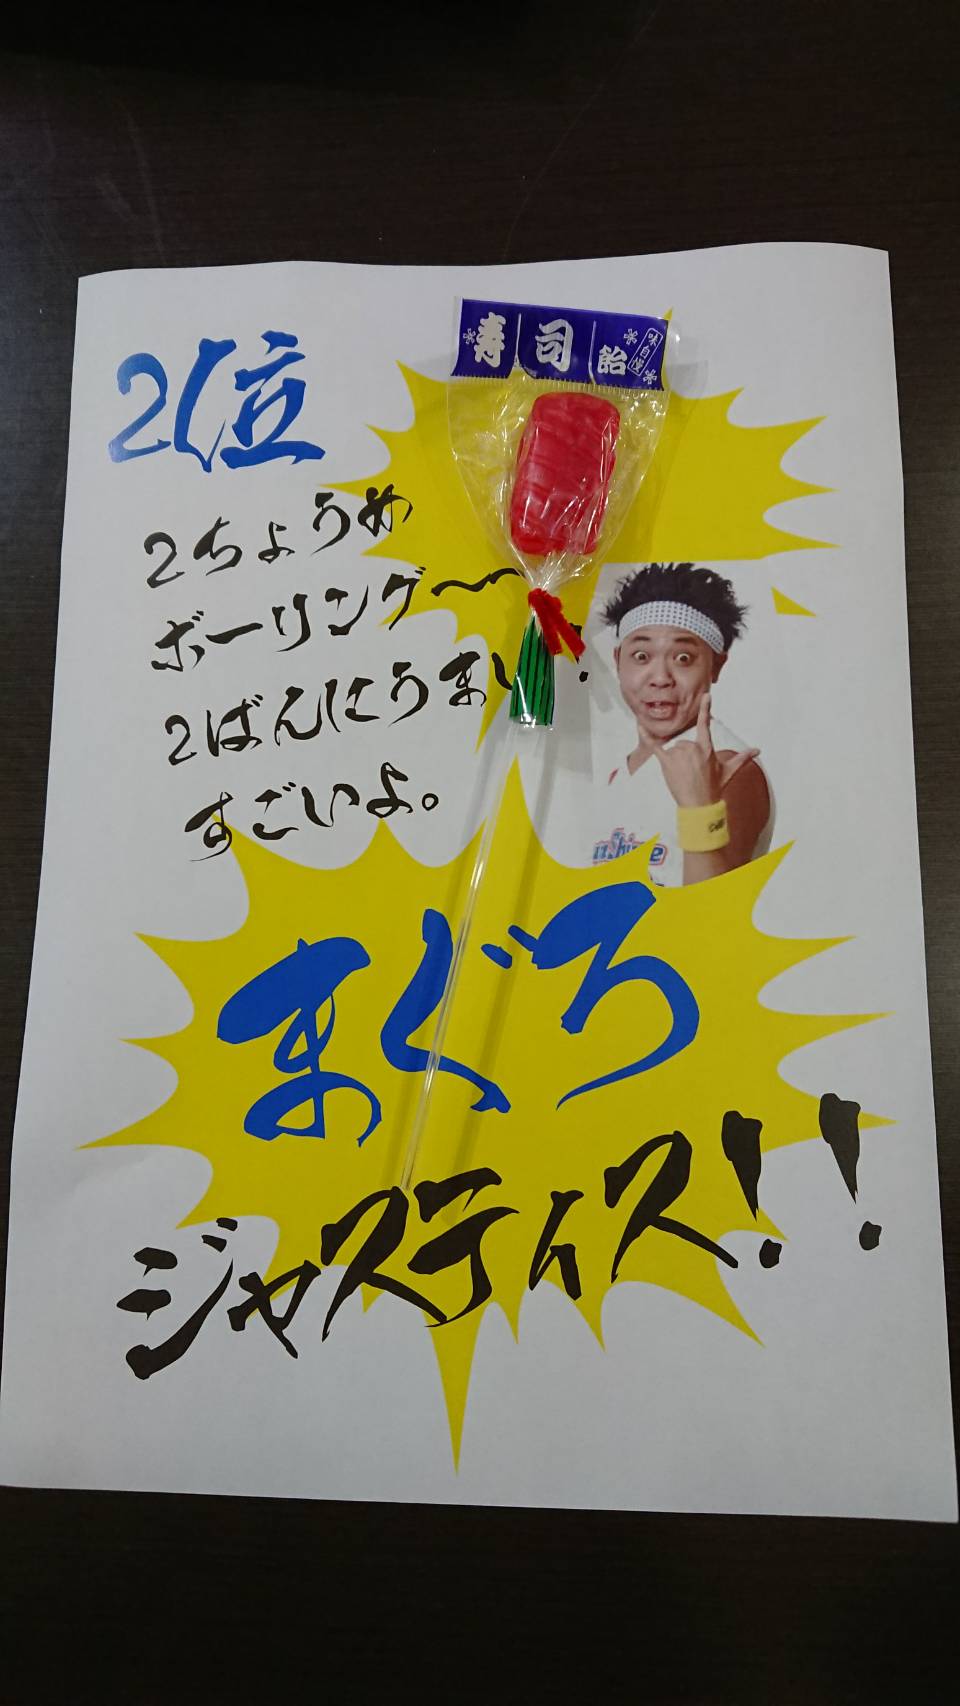 寿司飴
味自慢
2位
2ちょうめ
ボーリング〜
2ばんにうまい!
すごいよ。
まぐろ
ジャスティス!!